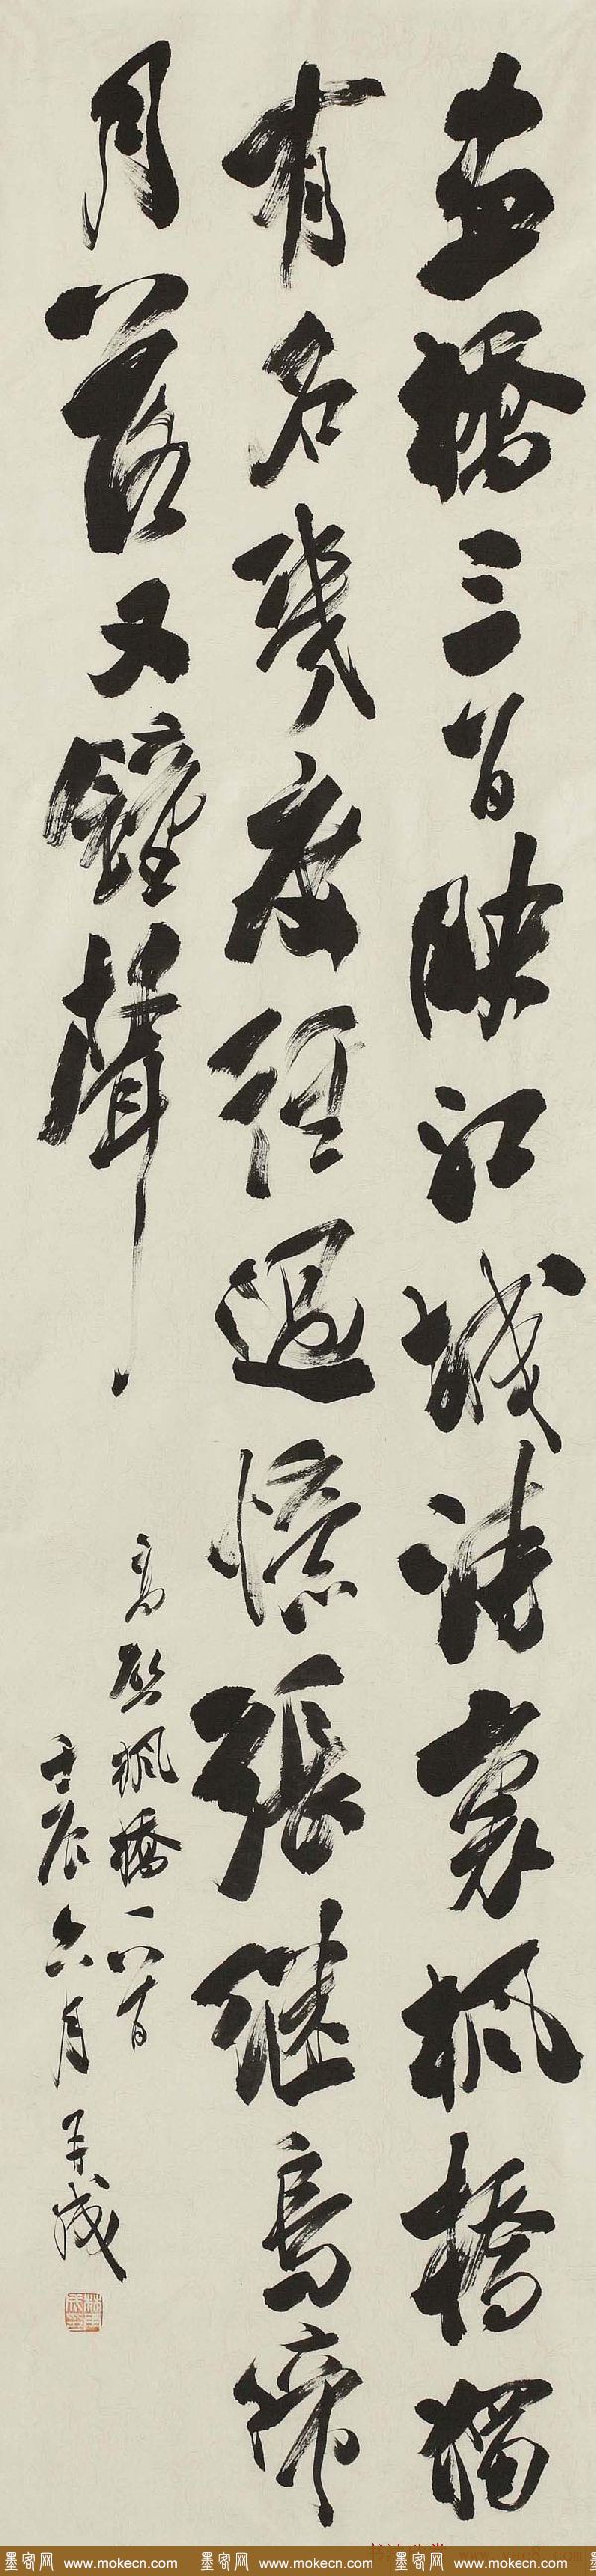 畫橋三百映江城詩裏楓橋獨
有名幾度經過憶張繼烏啼
月落又鐘聲
高啟楓橋一首
壬辰六月再成
墨客网 www.mokecn.com 墨客网 www.mokecn.com 墨客网 www.mokecn.com